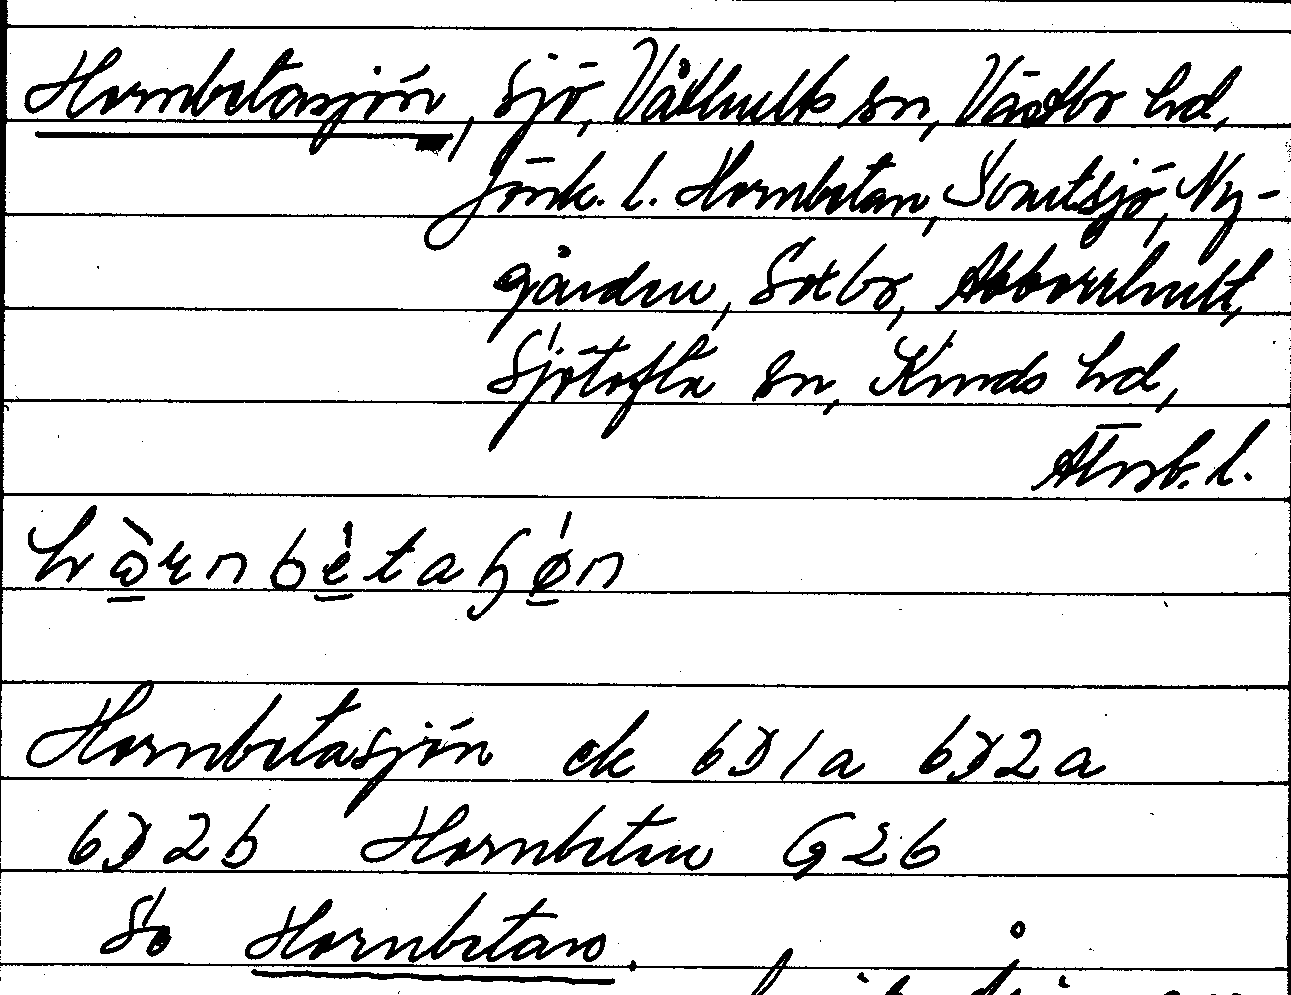 Hornbetasjön, sjö, Våthults sn, Västbo hd,
Jönk. l. Hornbetan, Svartsjö, Ny-
gården, Sotbo, Abborrhult,
Sjötofta sn, Kinds hd,
Älvsb. l.
Hornbetasjön ek 6D1a 6D2a
6D2b Hornbetan G26
Se Hornbetaro.